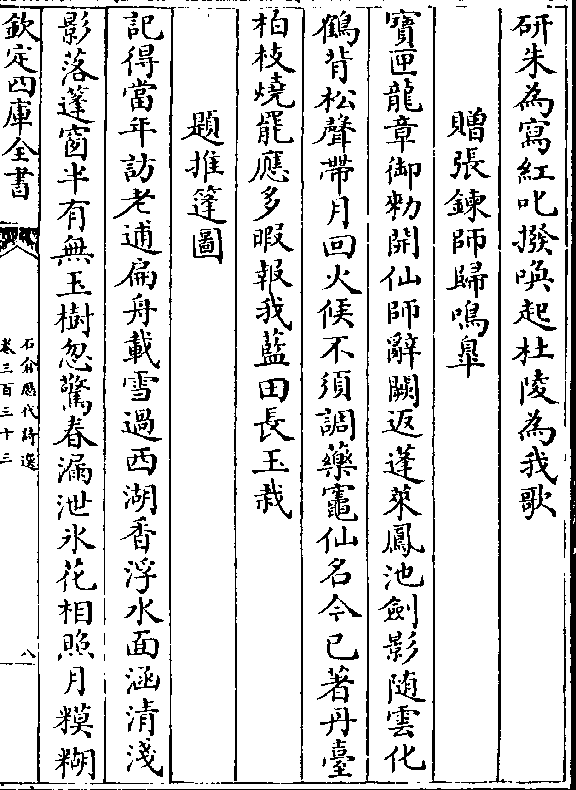 研朱為寫紅叱撥喚起杜陵為我歌
贈張鍊師歸鳴臯
寶匣龍章御勑開仙師辭闕返蓬萊鳳池劍影随雲化
鶴背松聲帶月回火候不須調藥竈仙名今已著丹臺
柏枝燒罷應多暇報我藍田長玉栽
題推篷圖
記得當年訪老逋扁舟載雪過西湖香浮水面涵清淺
影落篷窗半有無玉樹忽驚春漏泄氷花相照月糢糊
欽定四庫全書
石倉歷代詩選
卷三百三十三
八